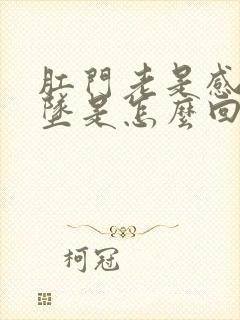 肛門老是感
墜是怎麼回
柯冠